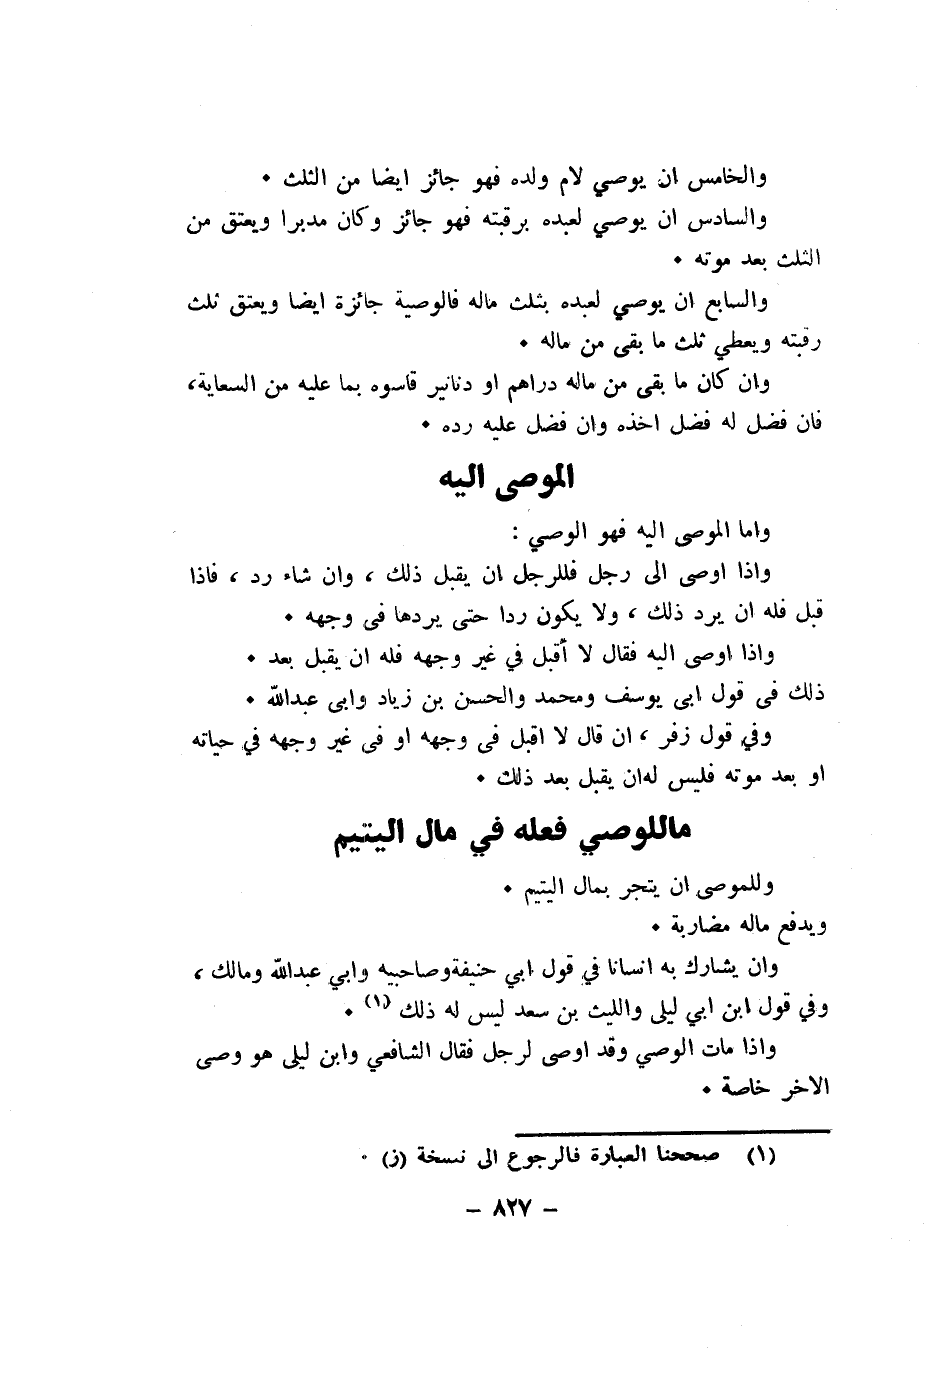 والخامس ان يوصي لام ولده فهو جائز ايضا من الثلث ٠
والسادس ان يوصي لعبده برقبته فهو جائز وكان مدبرا ويعتق من
الثلث بعد موته ٠
والسابع ان يوصي لعبده بثلث ماله فالوصية جائزة ايضا ويعتق ثلث
رقبته ويعطي ثلث ما بقى من ماله ٠
وان كان ما بقى من ماله دراهم او دنانير قاسوه بما عليه من السعاية،
فان فضل له فضل اخذه وان فضل عليه رده ٠
الموصى اليه
واما الموصى اليه فهو الوصي :
واذا اوصى الى رجل فللرجل ان يقبل ذلك ، وان شاء رد ، فاذا
قبل فله ان يرد ذلك ، ولا يكون ردا حتى يردها فى وجهه ٠
واذا اوصى اليه فقال لا أقبل في غير وجهه فله ان يقبل بعد ٠
ذلك فى قول ابى يوسف ومحمد والحسن بن زياد وابى عبدالله ٠
وفي قول زفر ، ان قال لا اقبل فى وجهه او فى غير وجهه في حياته
او بعد موته فليس له‌ان يقبل بعد ذلك ٠
ماللوصي فعله في مال اليتيم
وللموصى ان يتجر بمال اليتيم ٠
ويدفع ماله مضاربة ٠
وان يشارك به انسانا في قول ابي حنيفةوصاحبيه وابي عبدالله ومالك ،
وفي قول ابن ابي ليلى والليث بن سعد ليس له ذلك (١) ٠
واذا مات الوصي وقد اوصى لرجل فقال الشافعي وابن ليلى هو وصى
الاخر خاصة ٠
(١) صححنا العبارة فالرجوع الى نسخة (ز) ٠
– ٨٢٧ –